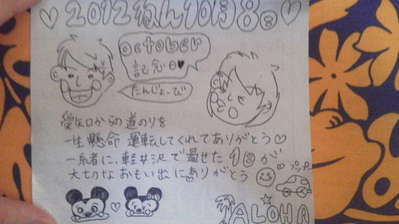 2012ねん10月8日
october
記念日♥
たんじょーび
愛知からの道のりを
一生懸命 運転してくれてありがとう♡
一糸者に、軽井沢で過せた1日が
大切なおもい出に ありがとう
ALOHA